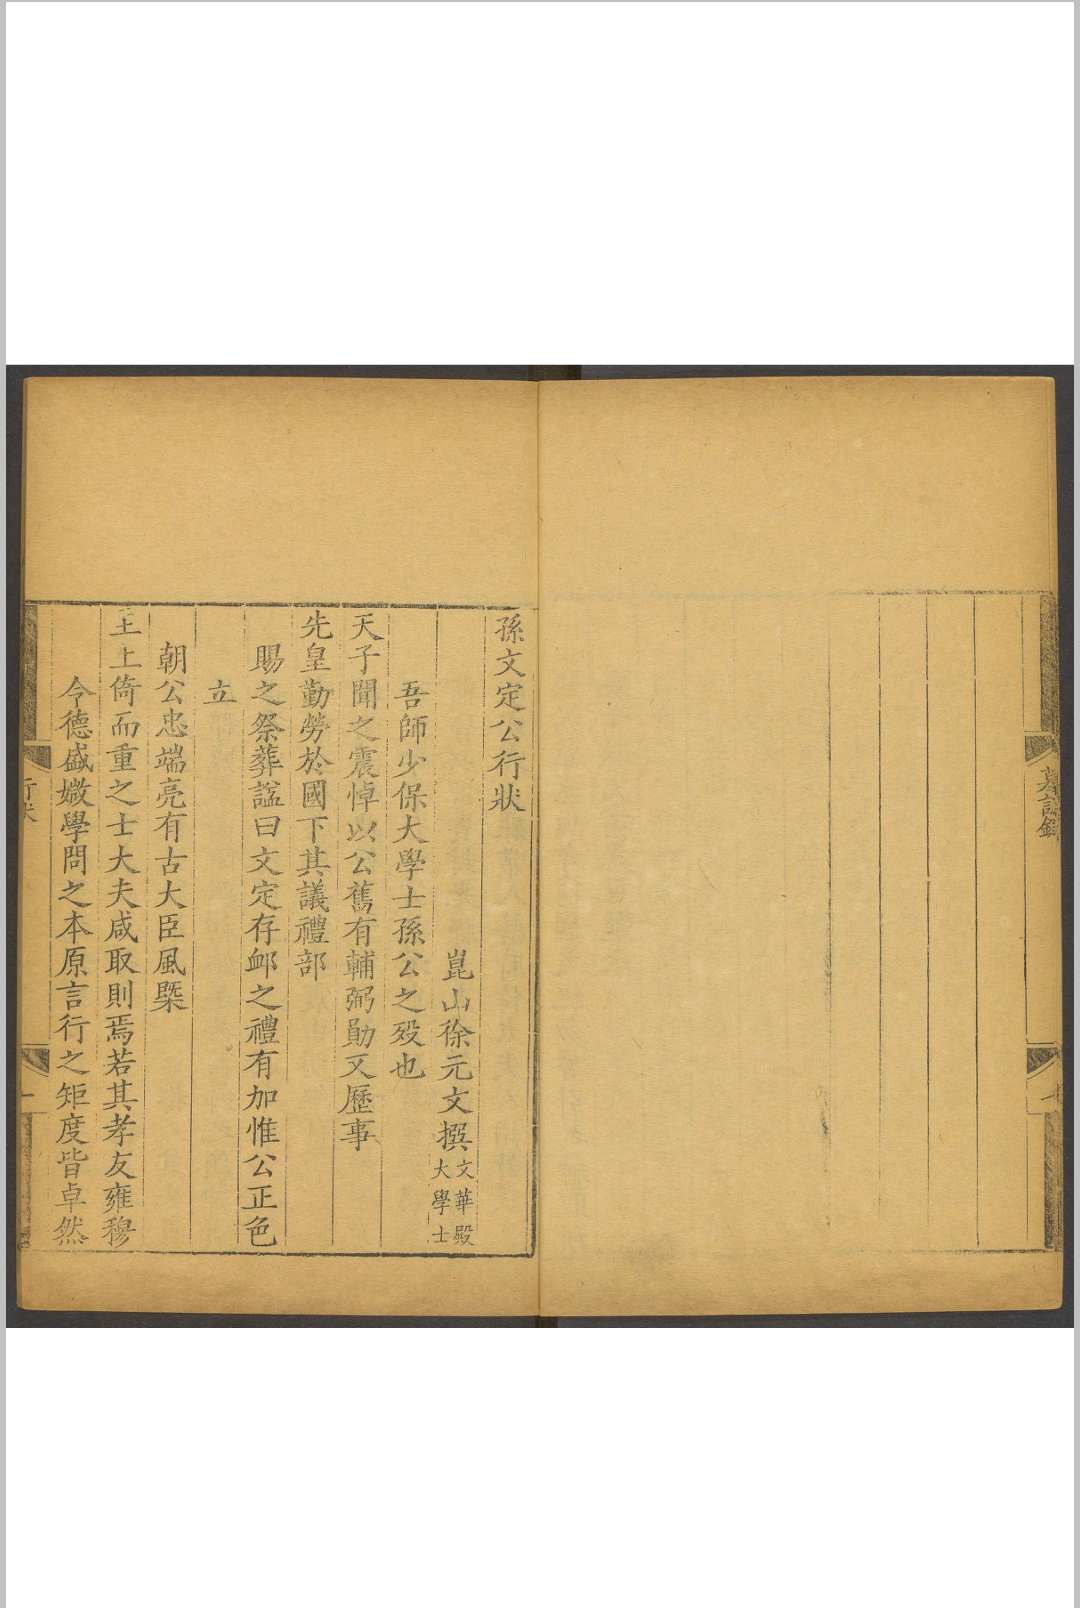 孫文定公行狀
崑山徐元文撰文華殿大學士
吾師少保大學士孫公之歿也
天子聞之震悼以公舊有輔弼勛又歷事
先皇勤勞於國下其議禮部
賜之祭葬諡曰文定存卹之禮有加惟公正色
立
朝公忠端亮有古大臣風槩
主上倚而重之士大夫咸取則焉若其孝友雍穆
令德盛媺學問之本原言行之矩度皆卓然
行狀
一